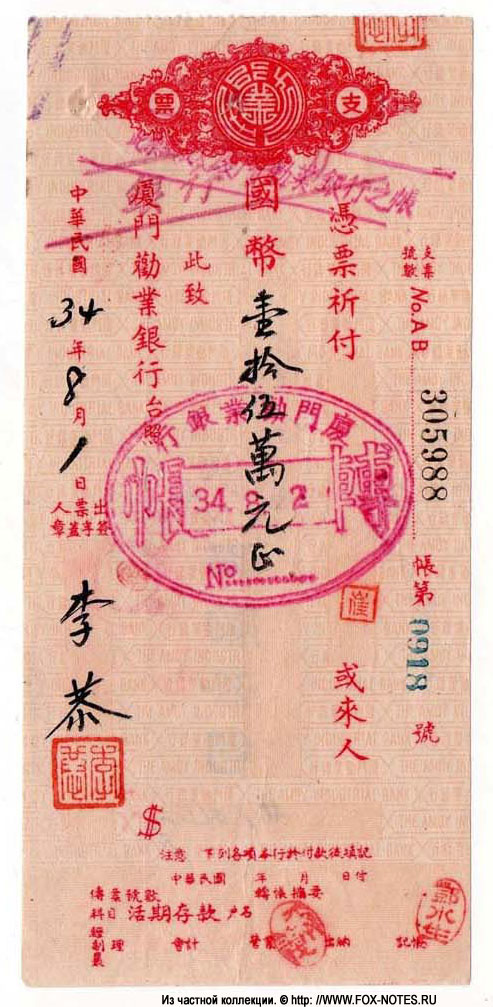 支票
支票號數 No.AB 305988
帳第 0918 號
憑票祈付
或來人
國幣壹拾伍萬元正
此致
廈門勸業銀行台照
中華民國34年8月1日
出票人簽字蓋章
李恭
廈門勸業銀行
轉帳
34. 8. 2
No.
崔
$
注意 下列各項本行於付款後填記
中華民國 年 月 日付
傳票號數 轉帳摘要
科目 活期存款 戶名
經理 會計 營業 出納 記帳
製票
鄭水生
Из частной коллекции. © http://WWW.FOX-NOTES.RU